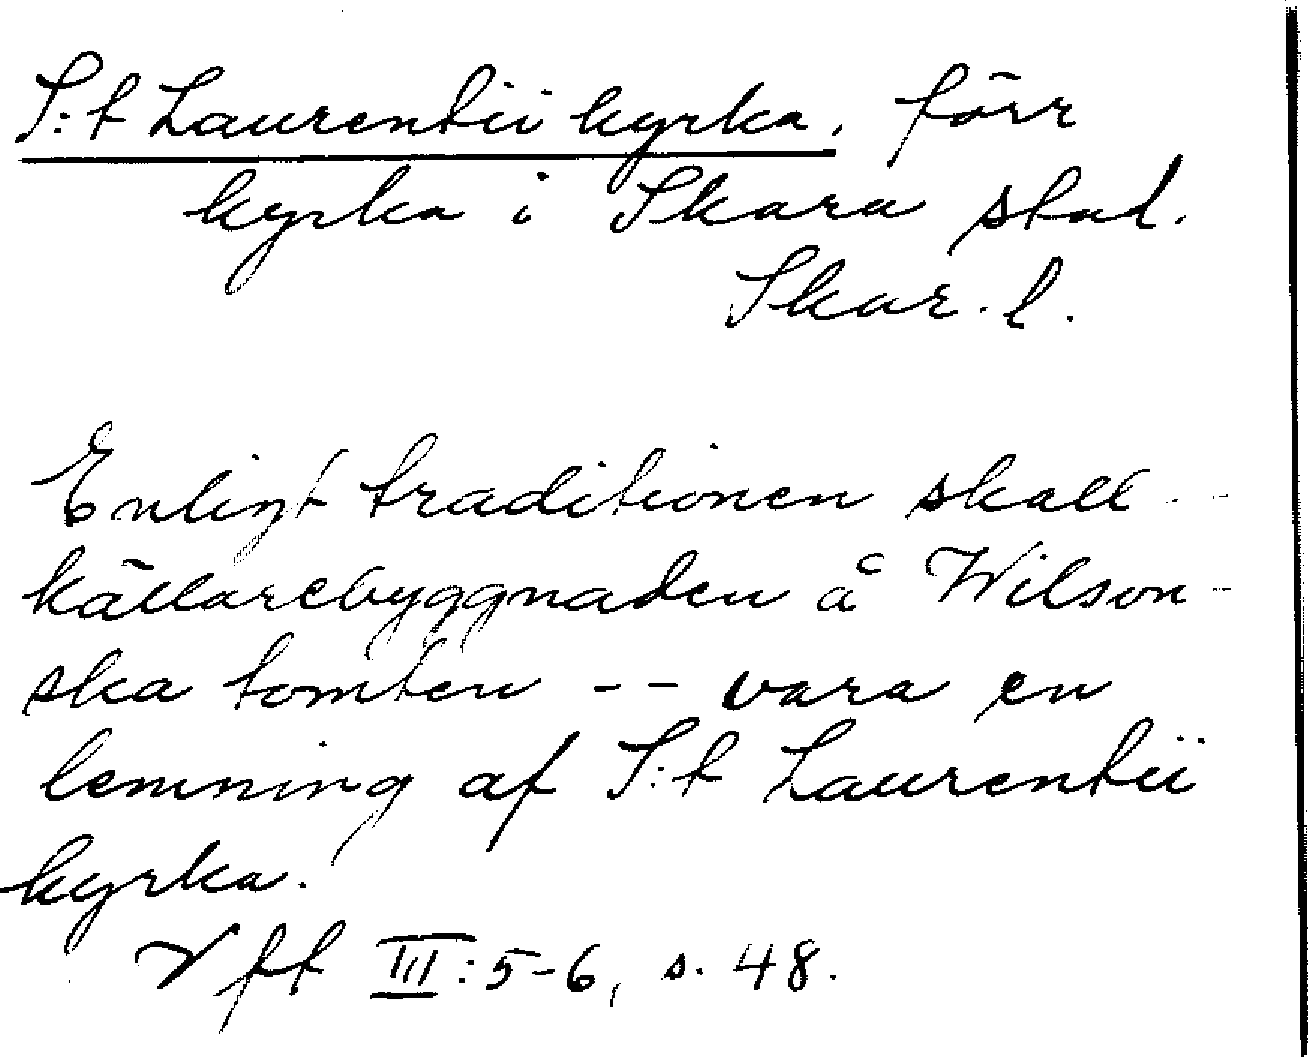 S:t Laurentii kyrka, förr
kyrka i Skara stad.
Skar. l.
Enligt traditionen skall --
källarebyggnaden å Wilson-
ska tomten -- vara en
lemning af S:t Laurentii
kyrka.
Vft III:5-6, s. 48.